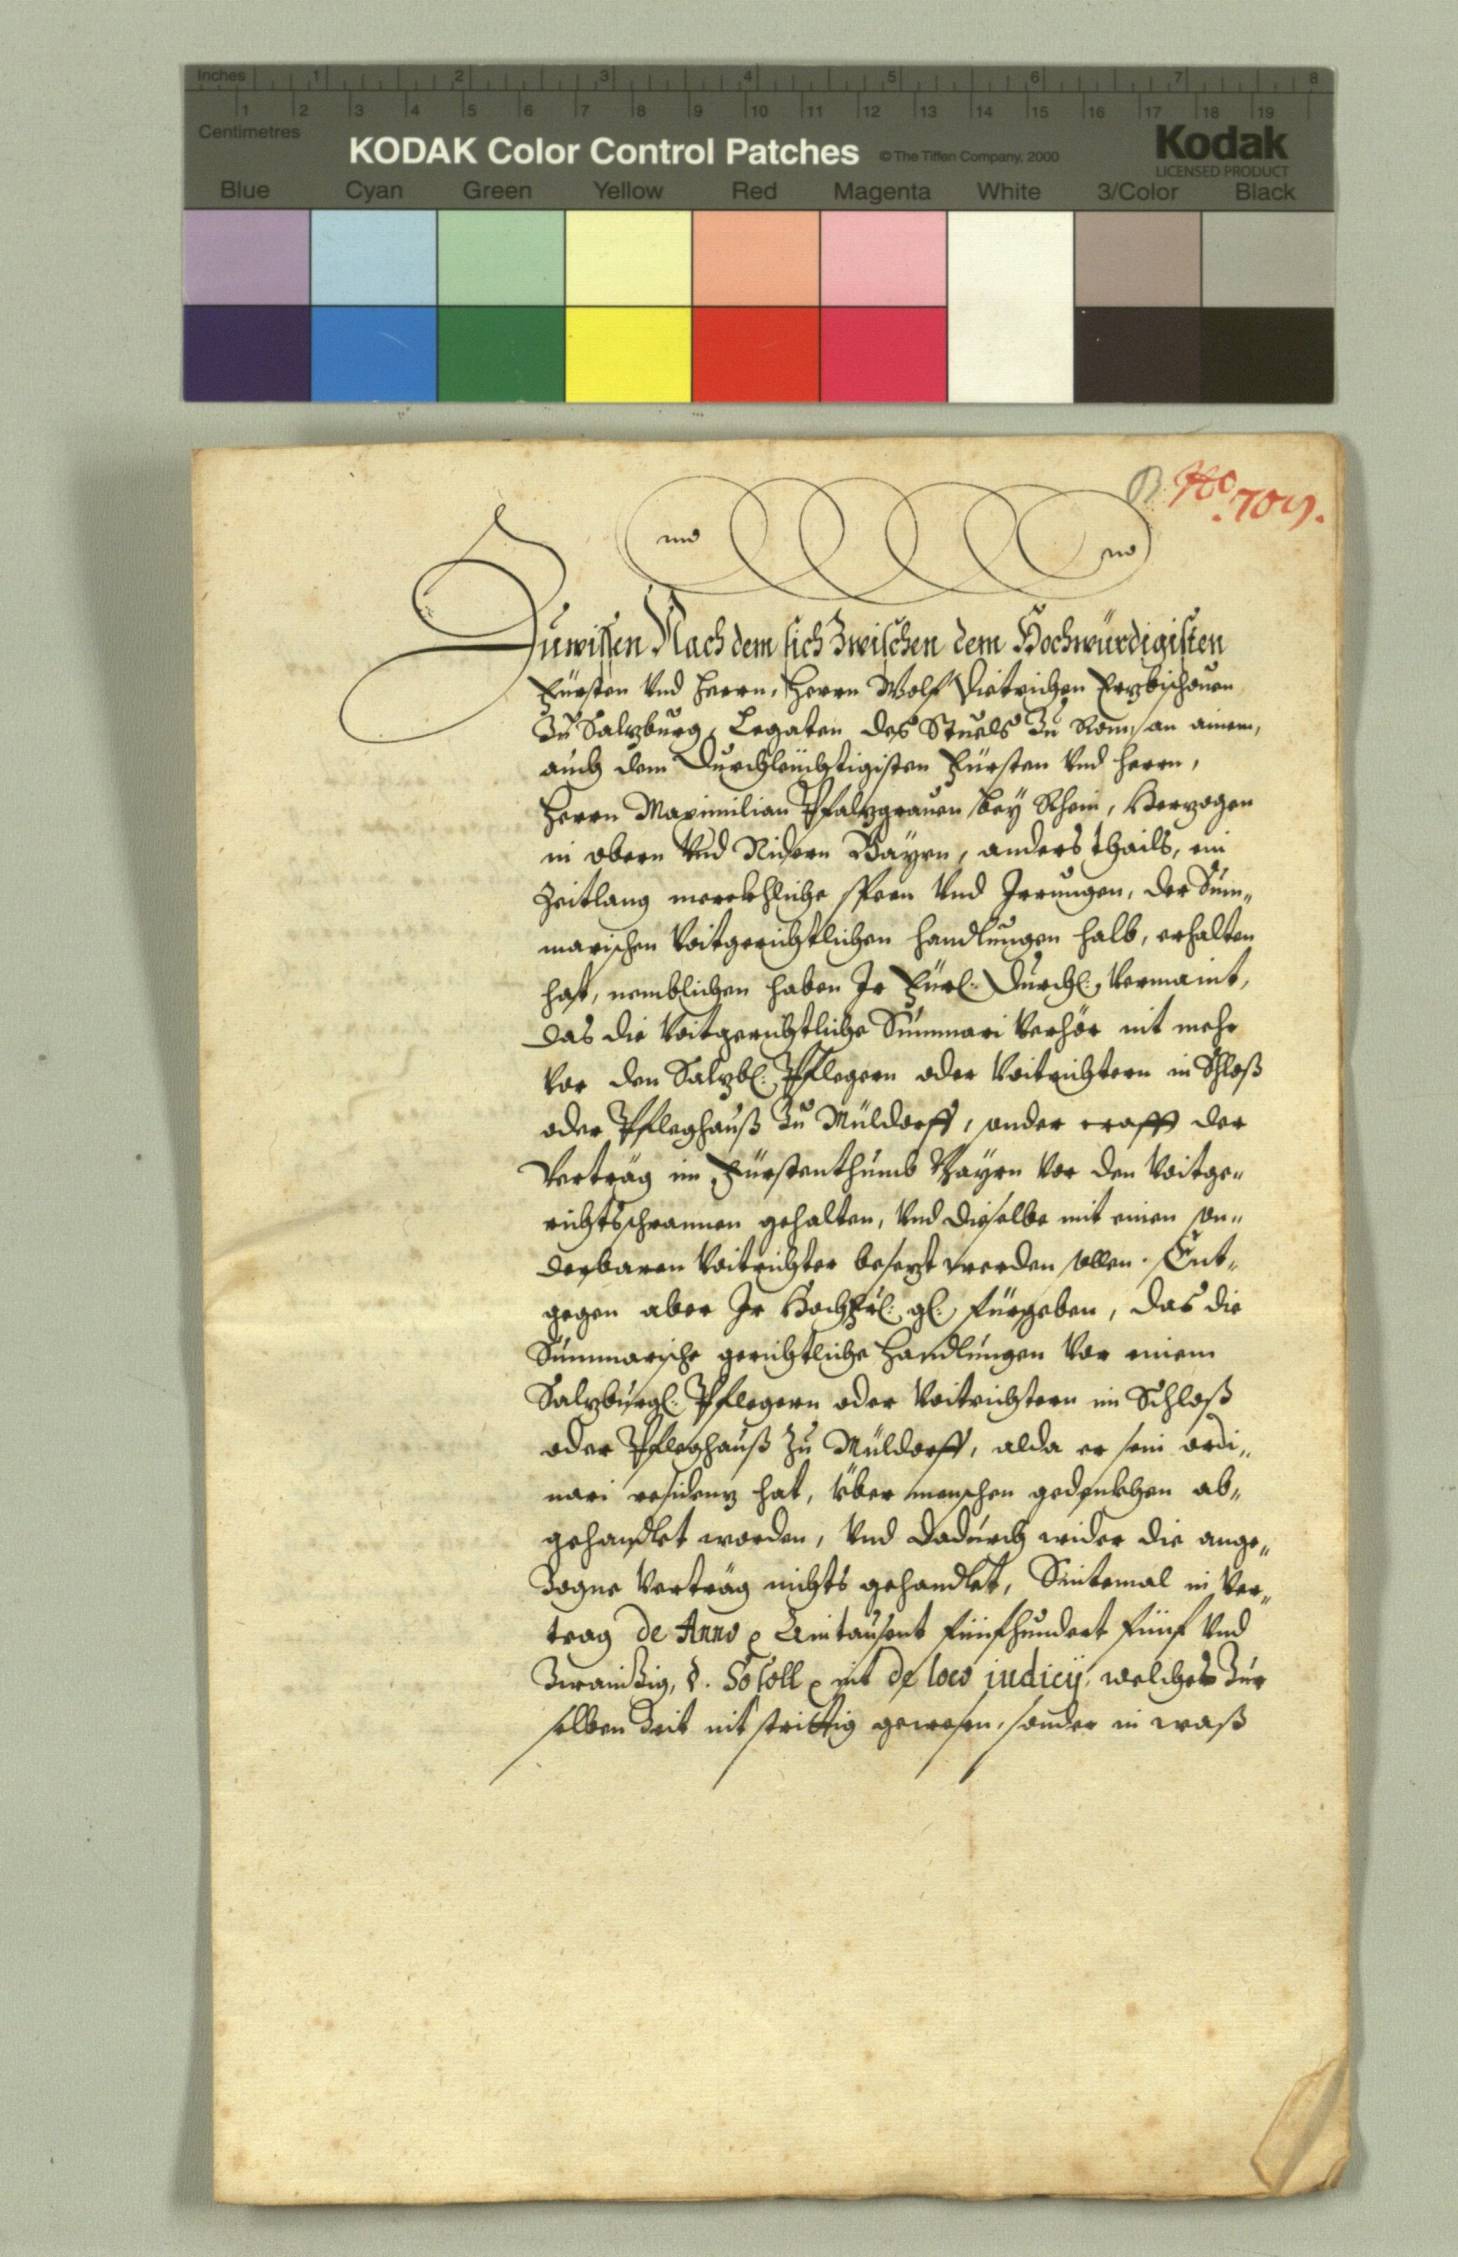 Inches 1 2 3 4 5 6 7 8
1 2 3 4 5 6 7 8 9 10 11 12 13 14 15 16 17 18 19
Centimetres
KODAK Color Control Patches © The Tiffen Company, 2000 Kodak
LICENSED PRODUCT
Blue Cyan Green Yellow Red Magenta White 3/Color Black
No. 709.
Zuwissen Nach dem sich Zwischen dem Hochwürdigisten
Fürsten Vnd Herrn, Herrn Wolf Dietrichen Erzbischouen
Zu Salzburg, Legaten des Stuels Zu Rom, an ainem,
auch dem Durchleuchtigisten Fürsten Vnd Herrn,
Herrn Maximilian Pfalzgrauen bey Rhein, Herzogen
in obern Vnd Nidern Bayrn, anders thails, ein
Zeitlang merckhliche spen Vnd Irrungen, der Sum„
marischen Voitgerichtlichen handlungen halb, erhalten
hat, nemblichen haben Ir Fürl: Durchl: Vermaint,
das die Voitgerichtliche Summari Verhör nit mehr
Vor den Salzb: Pflegern oder Voitrichtern in Schloß
oder Pfleghauß Zu Müldorff, sonder crafft der
Verträg im Fürstenthumb Bayrn Vor den Voitge„
richtsschrannen gehalten, Vnd dieselbe mit einen son„
derbaren Voitrichter besezt werden sollen. Ent„
gegen aber Ir Hochfrl: gl: fürgeben, das die
Summarische gerichtliche Handlungen Vor einem
Salzburgl: Pflegern oder Voitrichtern im Schloß
oder Pfleghauß Zu Müldorff, alda er sein ordi„
nari residenz hat, Über menschen gedenckhen ab„
gehandlet worden, Vnd dadurch wider die ange„
Zogne Verträg nichts gehandlet, Sintemal in Ver„
trag de Anno Aintausent fünfhundert fünf Vnd
Zwainzig, §. So soll nit de loco iudicij, welches Zur
selben Zeit nit strittig gewesen, sonder in waß